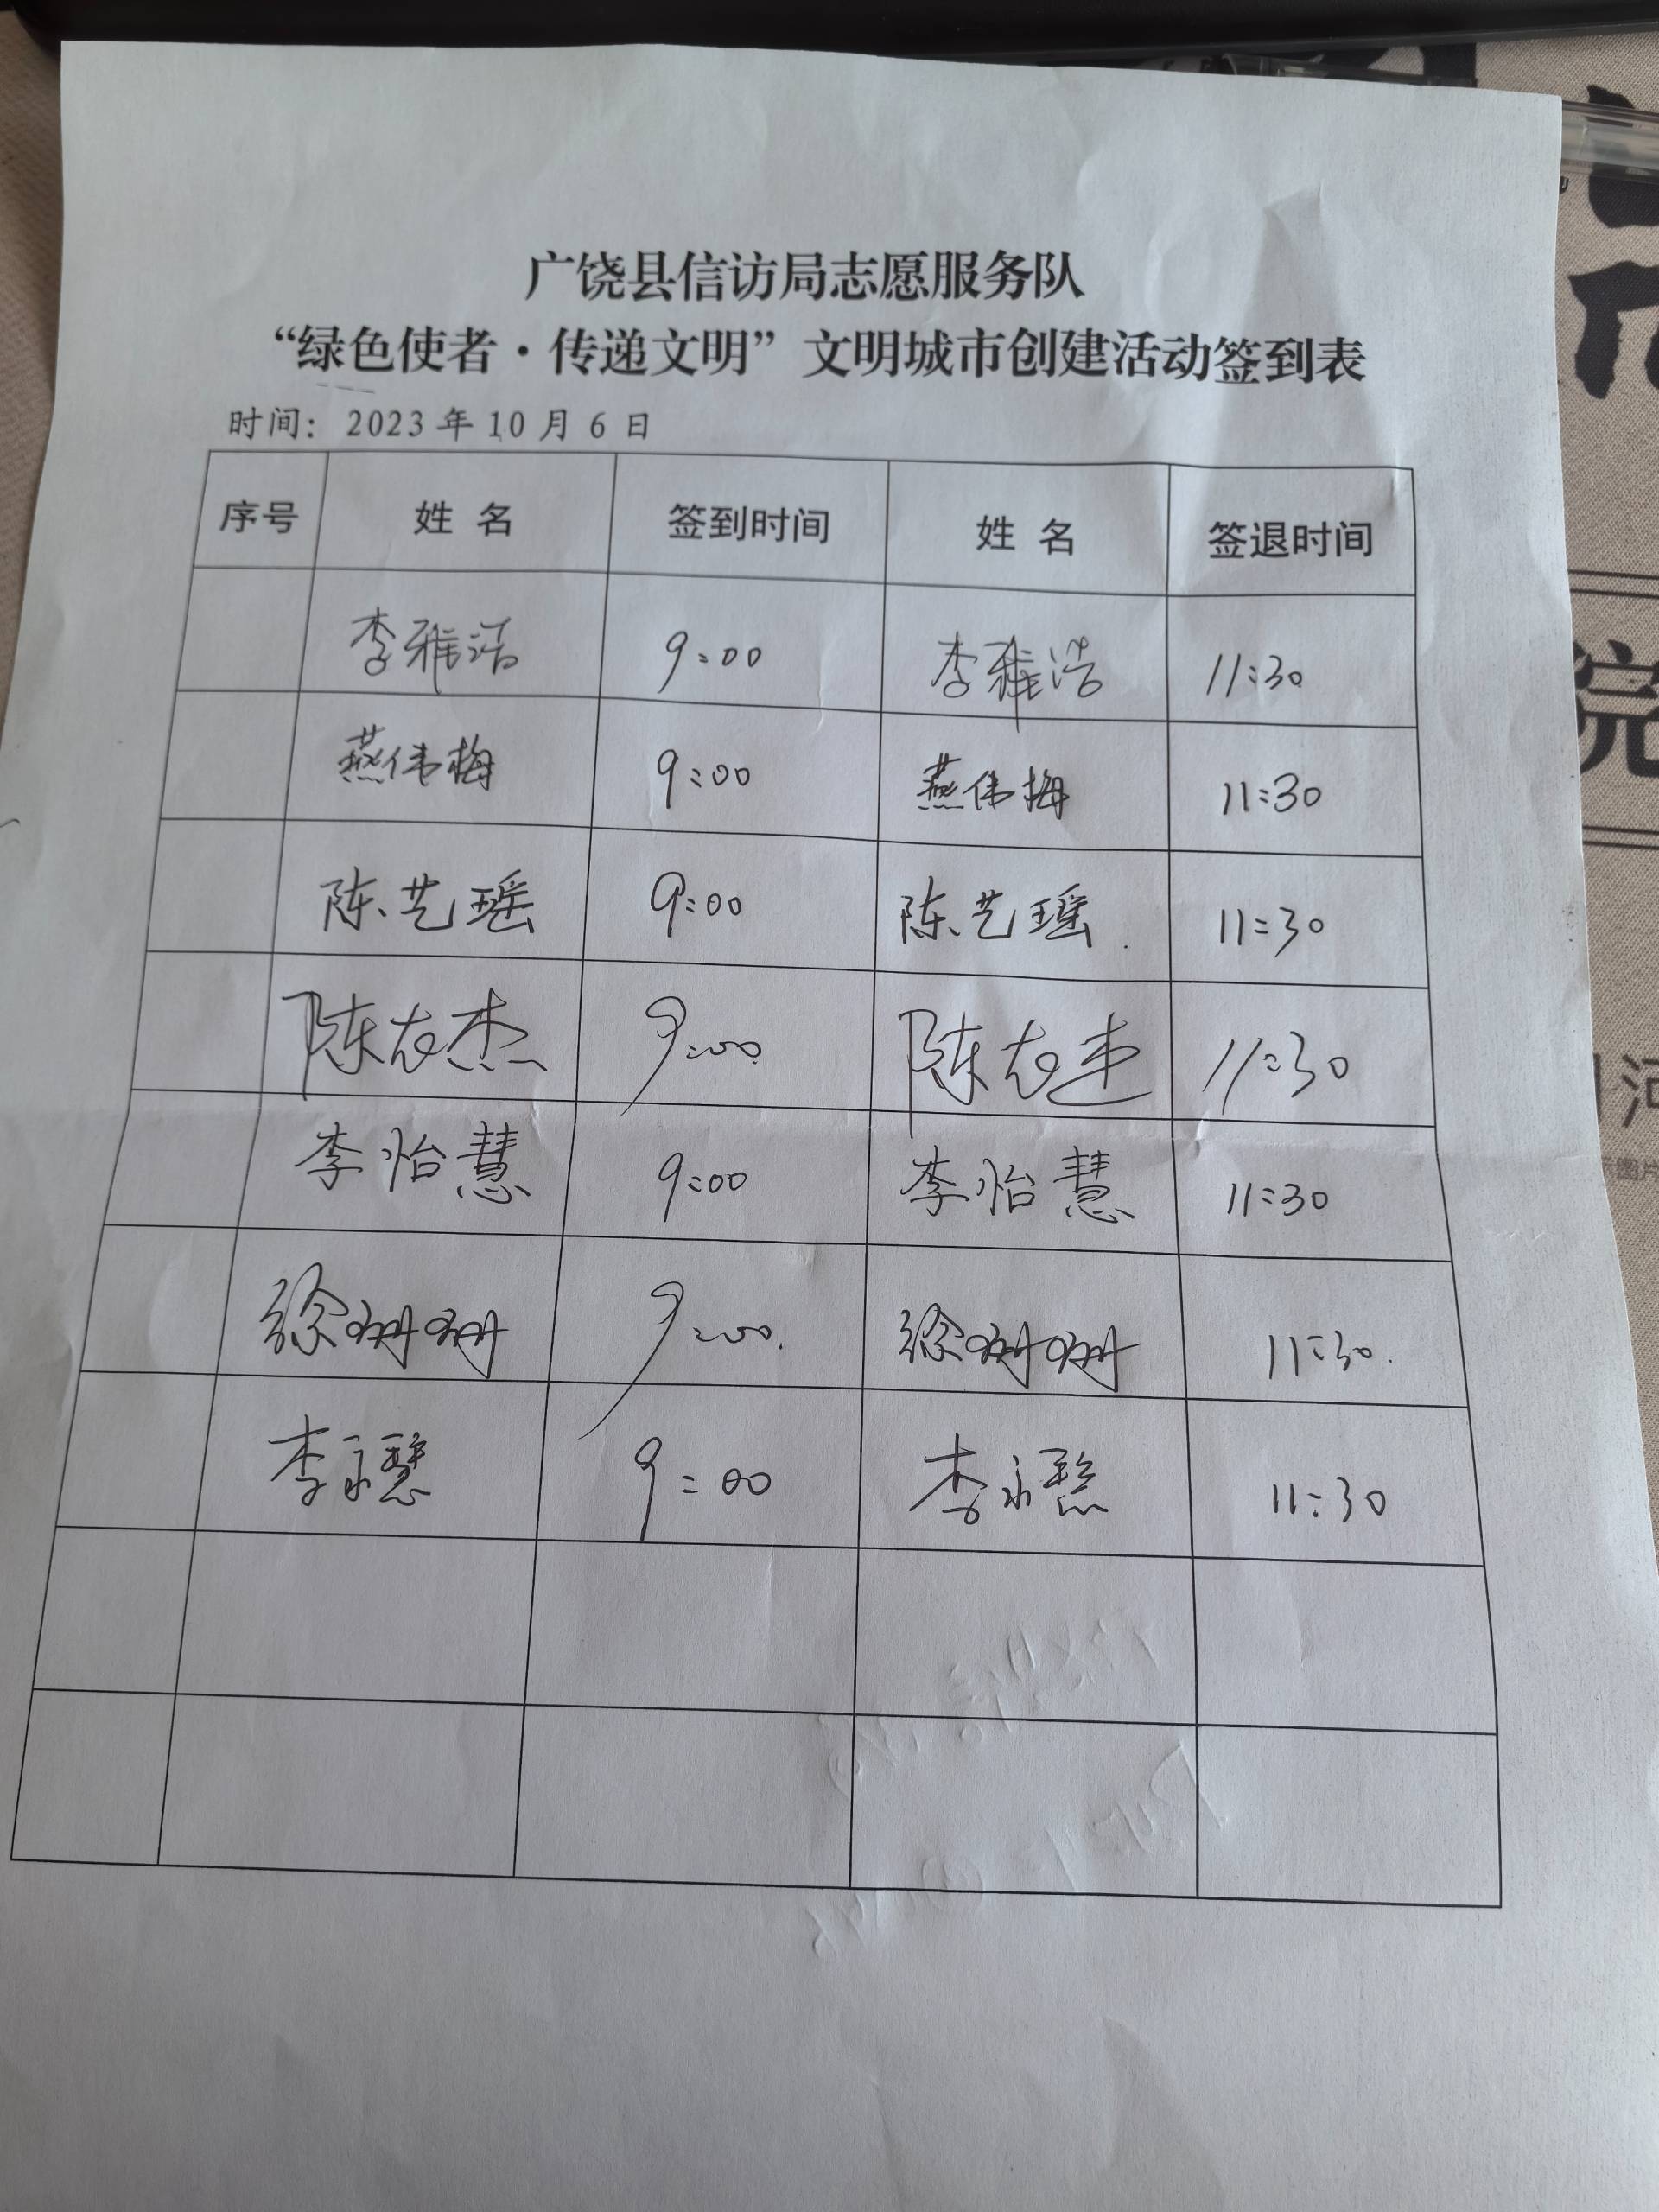 广饶县信访局志愿服务队
“绿色使者·传递文明”文明城市创建活动签到表
时间：2023年10月6日
序号 姓名 签到时间 姓名 签退时间
李雅洁 9:00 李雅浩 11:30
燕伟梅 9:00 燕伟梅 11:30
陈艺瑶 9:00 陈艺瑶 11:30
陈友杰 9:00 陈友杰 11:30
李怡慧 9:00 李怡慧 11:30
徐珊珊 9:00 徐珊珊 11:30
李永慧 9:00 李永 11:30
院
河
图片